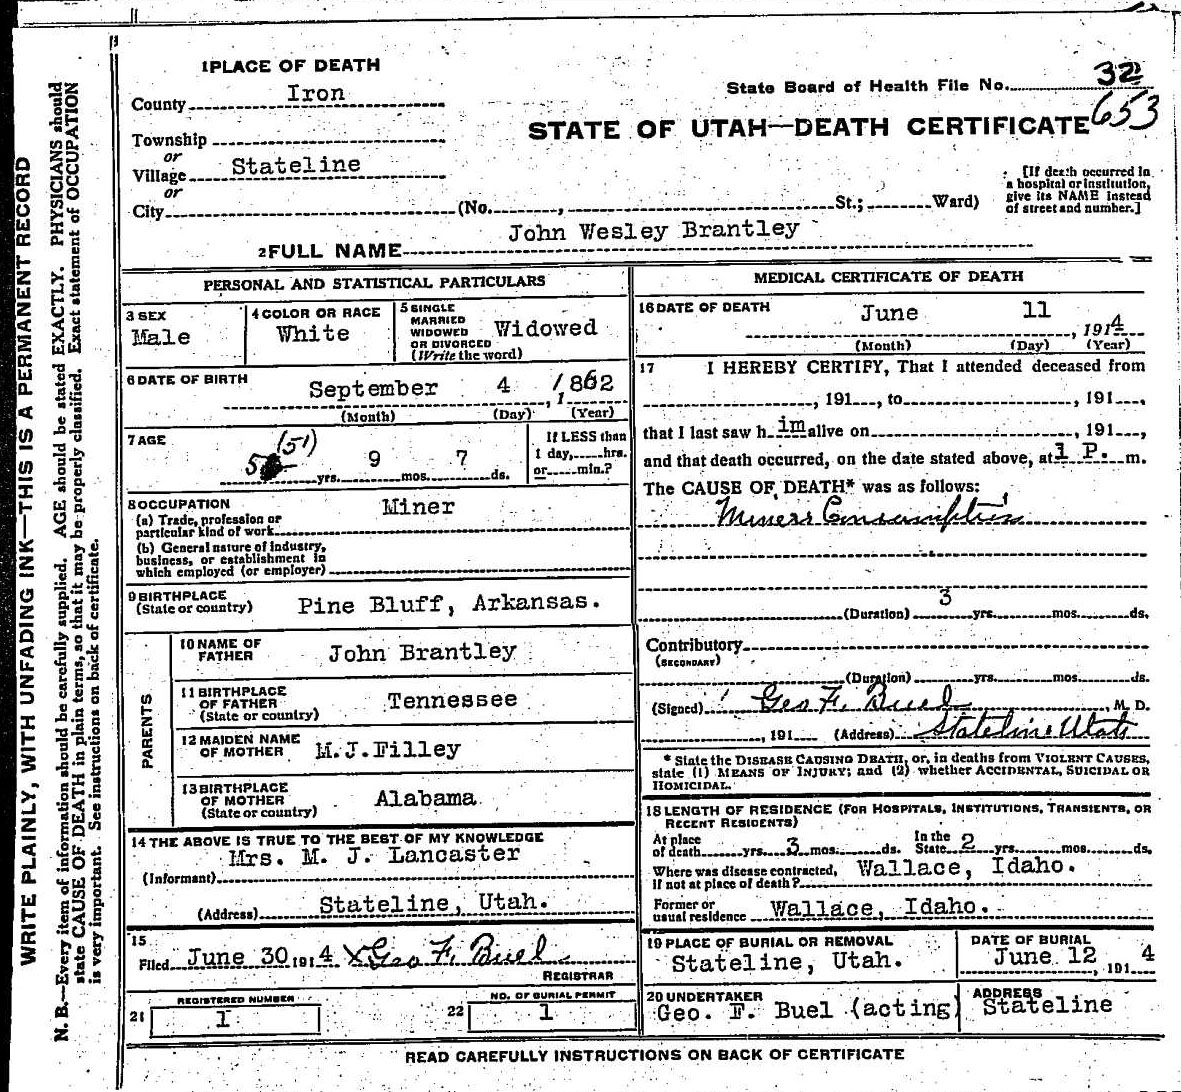 WRITE PLAINLY, WITH UNFADING INK—THIS IS A PERMANENT RECORD
N. B.—Every item of information should be carefully supplied. AGE should be stated EXACTLY. PHYSICIANS should
state CAUSE OF DEATH in plain terms, so that it may be properly classified. Exact statement of OCCUPATION
is very important. See instructions on back of certificate.
1 PLACE OF DEATH
County Iron
Township
or
Village Stateline
or
City (No. , St.; Ward)
State Board of Health File No. 32
653
STATE OF UTAH—DEATH CERTIFICATE
[If death occurred in
a hospital or institution,
give its NAME instead
of street and number.]
2 FULL NAME John Wesley Brantley
PERSONAL AND STATISTICAL PARTICULARS
3 SEX
Male
4 COLOR OR RACE
White
5 SINGLE
MARRIED
WIDOWED
OR DIVORCED
(Write the word)
Widowed
6 DATE OF BIRTH
September 4, 1862
(Month) (Day) (Year)
7 AGE
(51)
5 yrs. 9 mos. 7 ds.
If LESS than
1 day, hrs.
or min.?
8 OCCUPATION
Miner
(a) Trade, profession or
particular kind of work
(b) General nature of industry,
business, or establishment in
which employed (or employer)
9 BIRTHPLACE
(State or country) Pine Bluff, Arkansas.
PARENTS
10 NAME OF
FATHER John Brantley
11 BIRTHPLACE
OF FATHER
(State or country) Tennessee
12 MAIDEN NAME
OF MOTHER M.J.Filley
13 BIRTHPLACE
OF MOTHER
(State or country) Alabama
14 THE ABOVE IS TRUE TO THE BEST OF MY KNOWLEDGE
(Informant) Mrs. M. J. Lancaster
(Address) Stateline, Utah.
15
Filed June 30 1914 X Geo F. Buel
REGISTRAR
REGISTERED NUMBER
21 1
NO. OF BURIAL PERMIT
22 1
MEDICAL CERTIFICATE OF DEATH
16 DATE OF DEATH
June 11, 1914
(Month) (Day) (Year)
17 I HEREBY CERTIFY, That I attended deceased from
, 191 , to , 191 ,
that I last saw h im alive on , 191 ,
and that death occurred, on the date stated above, at 1 P. m.
The CAUSE OF DEATH* was as follows:
Miners Consumption
(Duration) 3 yrs. mos. ds.
Contributory
(SECONDARY)
(Duration) yrs. mos. ds.
(Signed) Geo F. Buel, M. D.
, 191 (Address) Stateline Utah
* State the DISEASE CAUSING DEATH, or, in deaths from VIOLENT CAUSES,
state (1) MEANS OF INJURY; and (2) whether ACCIDENTAL, SUICIDAL OR
HOMICIDAL.
18 LENGTH OF RESIDENCE (FOR HOSPITALS, INSTITUTIONS, TRANSIENTS, OR
RECENT RESIDENTS)
At place
of death yrs. 3 mos. ds. In the
State 2 yrs. mos. ds.
Where was disease contracted,
if not at place of death? Wallace, Idaho.
Former or
usual residence Wallace, Idaho.
19 PLACE OF BURIAL OR REMOVAL
Stateline, Utah.
DATE OF BURIAL
June 12, 1914
20 UNDERTAKER
Geo. F. Buel (acting)
ADDRESS
Stateline
READ CAREFULLY INSTRUCTIONS ON BACK OF CERTIFICATE